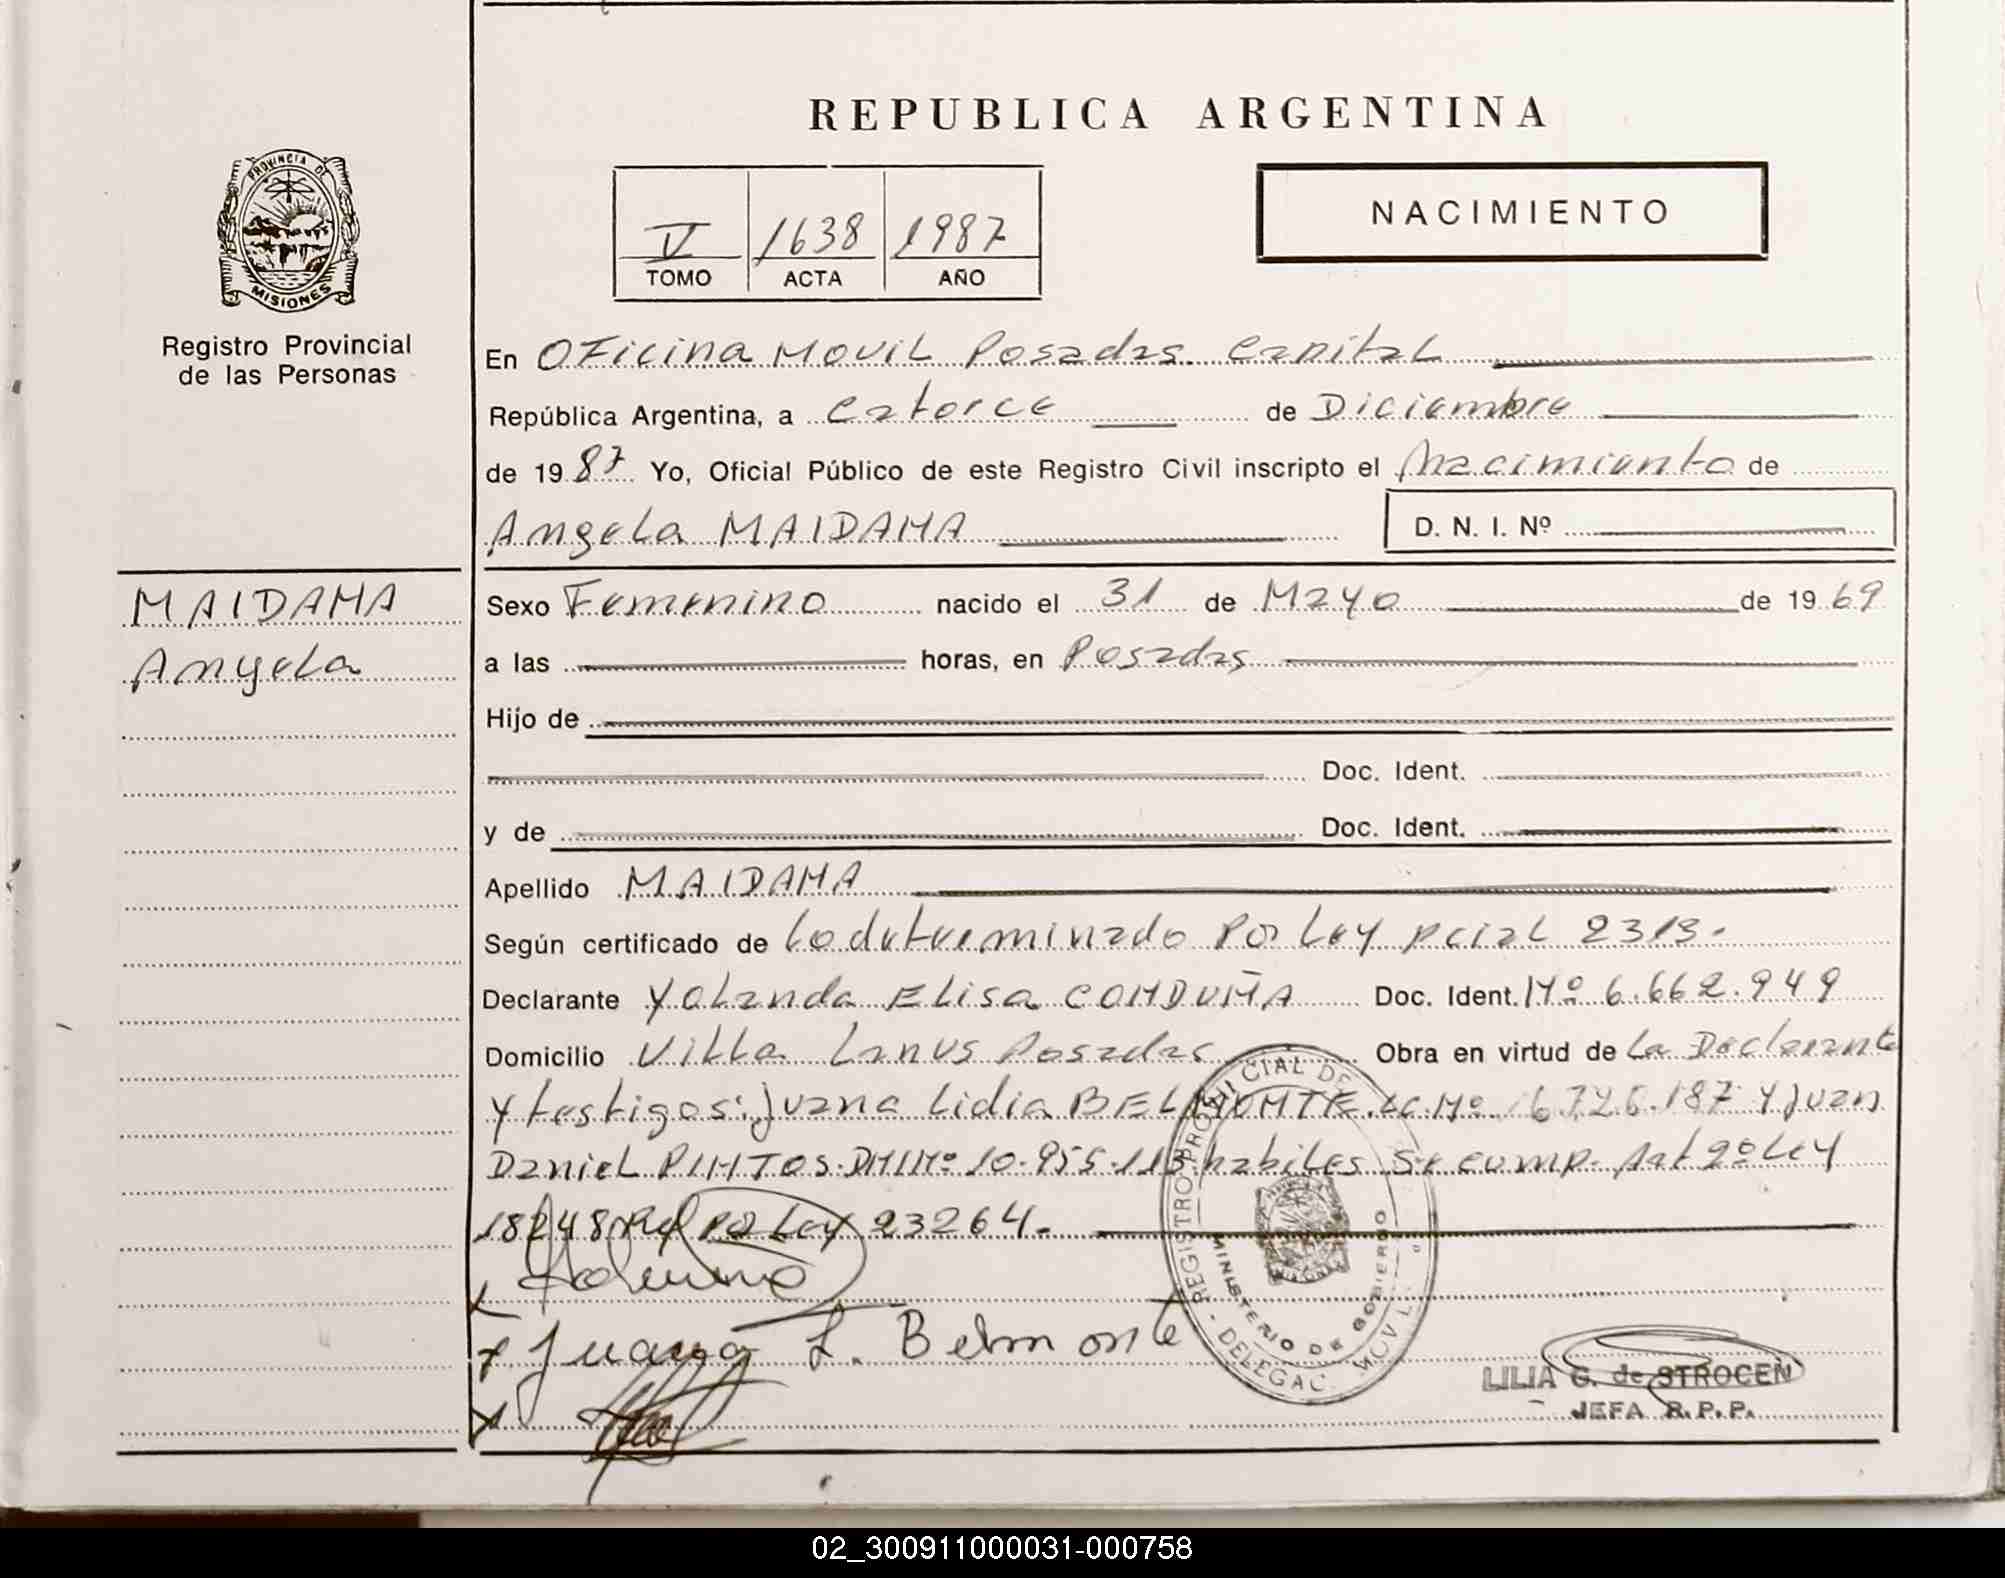 REPUBLICA ARGENTINA
PROVINCIA DE
MISIONES
Registro Provincial
de las Personas
V 1638 1987
TOMO ACTA AÑO
NACIMIENTO
En Oficina Movil Posadas. Capital
República Argentina, a Catorce de Diciembre
de 1987 Yo, Oficial Público de este Registro Civil inscripto el Nacimiento de
Angela MAIDANA D. N. I. Nº
MAIDANA
Angela
Sexo Femenino nacido el 31 de Mayo de 1969
a las horas, en Posadas
Hijo de
Doc. Ident.
y de Doc. Ident.
Apellido MAIDANA
Según certificado de lo determinado Por Ley pcial 2313.
Declarante Yolanda Elisa CONDUÑA Doc. Ident. Nº 6.662.949
Domicilio Villa Lanus Posadas Obra en virtud de La Declarante
y testigos: Juana Lidia BELMONTE. LC. Nº 6.726.187 y Juan
Daniel PINTOS. DNI Nº 10.955.113 habiles Se comp. Art 2º Ley
18248 Por Ley 23264.
Juana L. Belmonte
REGISTRO PROVINCIAL DE
MINISTERIO DE GOBIERNO
DELEGAC. MOVIL
LILIA G. de STROCEN
JEFA R.P.P.
02_300911000031-000758